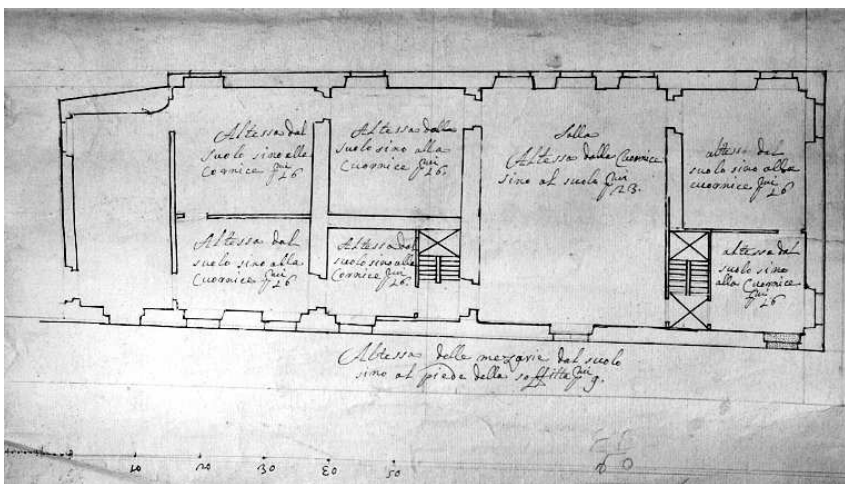 Altessa dal
suolo sino alla
Cornice pui 26
Altessa dalla
suolo sino alla
Cuornice pui 26.
Salla
Altessa dalla Cuornice
sino al suolo pui 23.
altessa dal
suolo sino alla
cuornice pui 26
Altessa dal
suolo sino alla
Cuornice pui 26
Altessa dal
suolo sino alla
Cornice pui 26.
altessa dal
suolo sino
alla Cuornice
pui 26
Altessa delle mezarie dal suolo
sino al piede della soffitta pui 9.
10 20 30 40 50 60